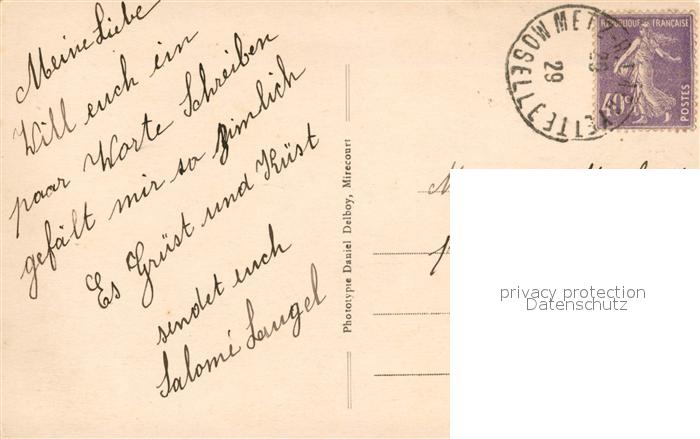 Meine Liebe
Will euch ein
paar Worte Schreiben
gefält mir so zimlich
Es Grüst und Küst
sendet euch
Salomé Laugel
Phototypie Daniel Delboy, Mirecourt
METZ
MOSELLE
29
REPUBLIQUE FRANÇAISE
40c
POSTES
privacy protection
Datenschutz